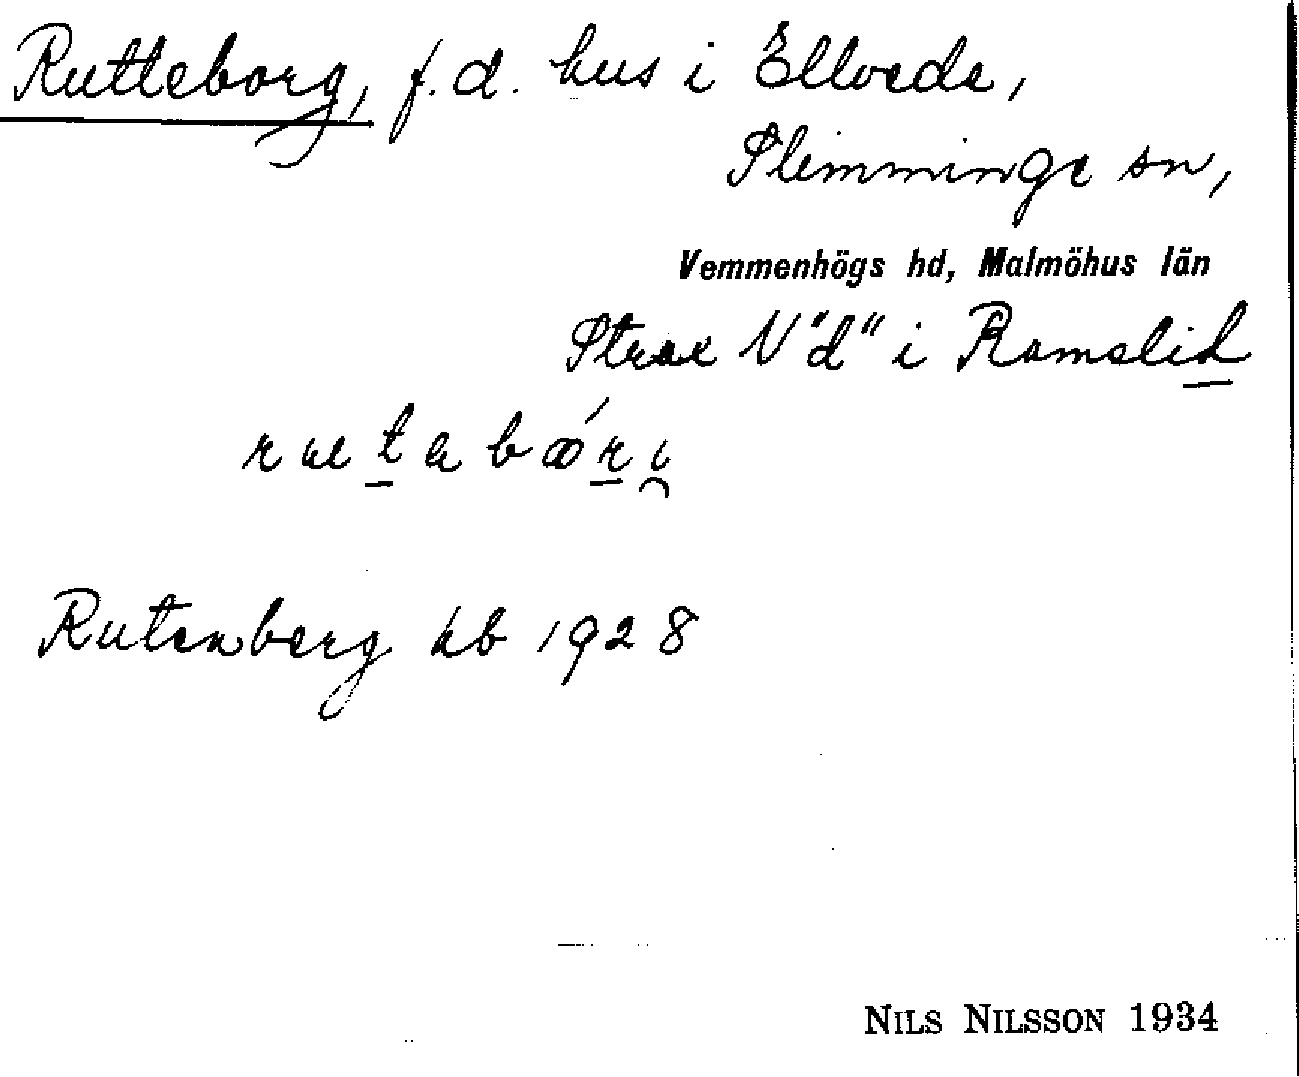 Rutteborg, f.d. hus i Ellveda,
Slimminge sn,
Vemmenhögs hd, Malmöhus län
Strax V"d" i Romelid
Rutenberg kb 1928
NILS NILSSON 1934